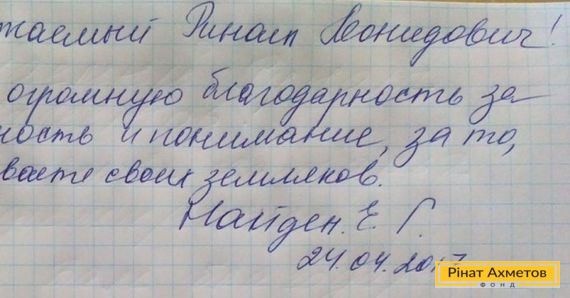 жаемый Ринат Леонидович!
огромную благодарность за
ность и понимание, за то,
ваете своих земляков.
Найден. Е. Г.
24.04.2017
Рінат Ахметов
ФОНД